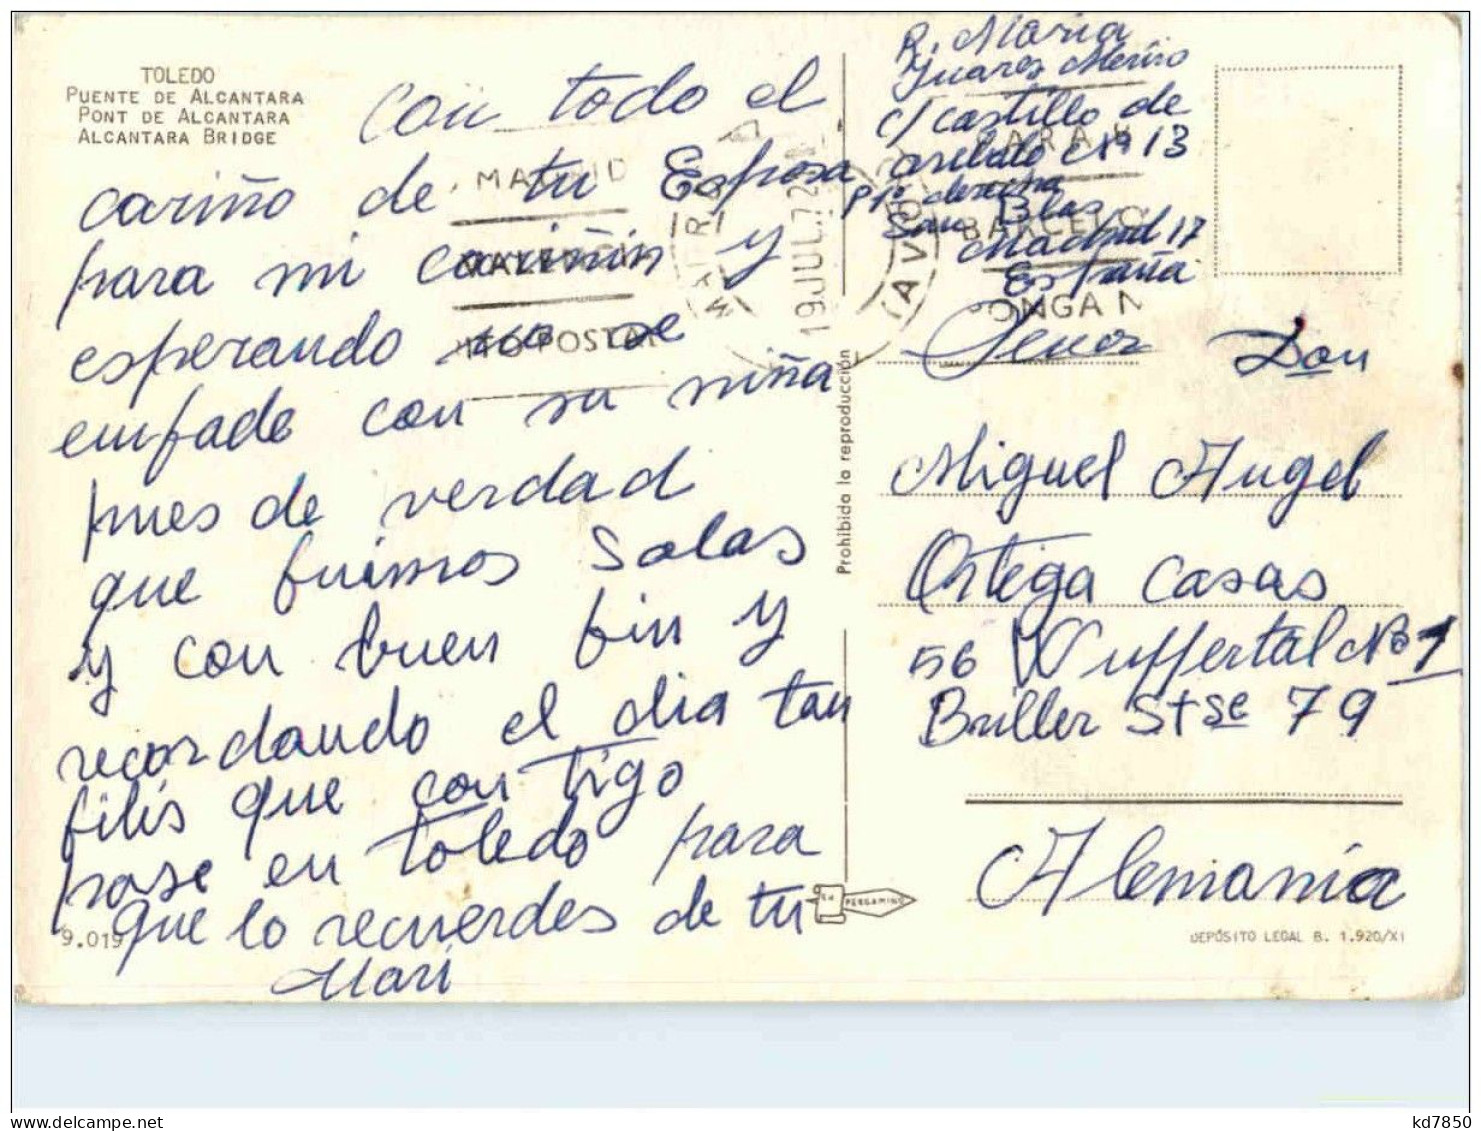 TOLEDO
PUENTE DE ALCANTARA
PONT DE ALCANTARA
ALCANTARA BRIDGE
Con todo el
cariño de tu Esposa
para mi cariñin y
esperando no se
enfade con su niña
pues de verdad
que fuimos solas
y con buen fin y
recordando el dia tan
filis que con tigo
pase en toledo para
que lo recuerdes de tu
Mari
9.019
MADRID
VALENCIA
TO POSTAL
19 JUL 72
PARA
BARCELO
ONGA N
Prohibida la reproducción
ED. PERGAMINO
R. Maria
Juares Merino
c/ castillo de
arebalo Nº 13
P 1º derecha
San Blas
Madrid 17
España
Senor Don
Miguel Angel
Ortega Casas
56 Wuffertal No 1
Briller Stse 79
Alemania
DEPÓSITO LEGAL B. 1.920/XI
kd7850